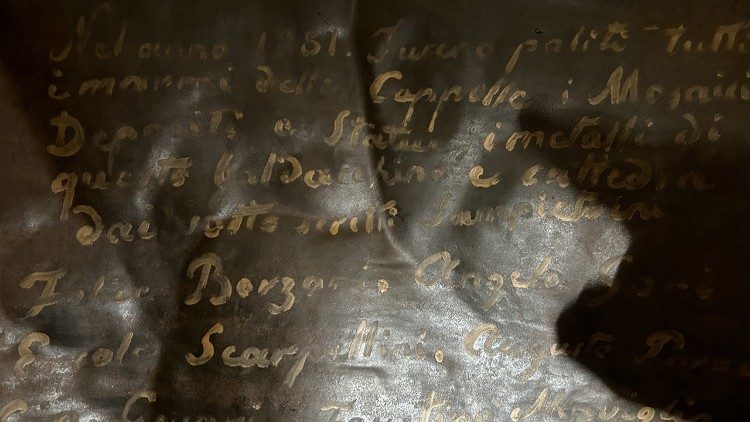 Nel anno 1861. Furono politi tutti
i marmi delle Cappelle i Mosaici
Depositi e Statue, i metalli di
questo baldacchino e cattedra
dai sotto scritti Sampietrini
Borzani Angelo
Ercole Scarpellini, Auguste
Maviglia